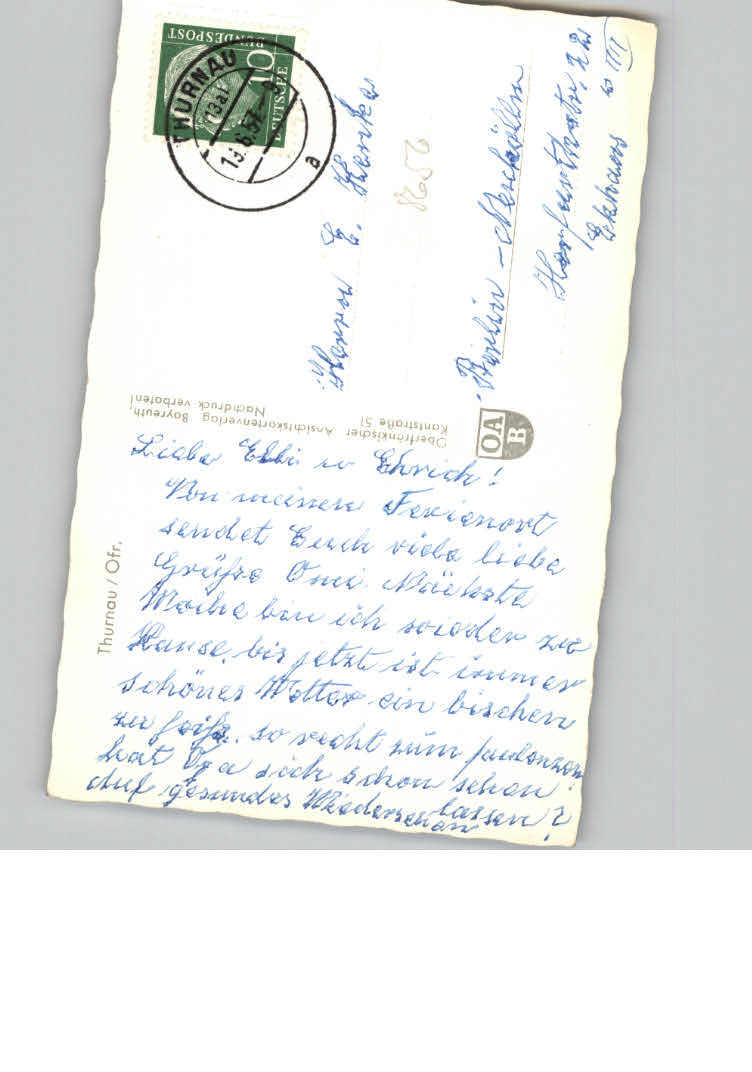 Thurnau / Ofr.
Liebe Elli u Ehrich!
Von meinem Ferienort
sendet Euch viele liebe
Grüße Omi. Nächste
Woche bin ich wieder zu
Hause, bis jetzt ist immer
schönes Wetter ein bischen
zu heiß, so recht zum faulenzen.
hat sich schon sehen
lassen?
Auf gesundes Wiedersehen
!
Oberfränkischer Ansichtskartenverlag Bayreuth
Kantstraße 51
Nachdruck verboten!
OA
B
DEUTSCHE
BUNDESPOST
10
THURNAU
(13a)
a
Herrn E.
Berlin - Neukölln
22
III